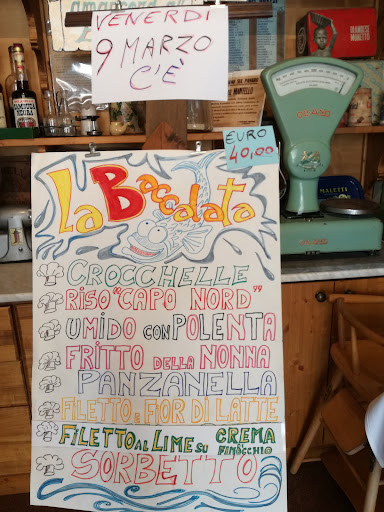 VENERDI
9 MARZO
C'È
EURO
40,00
La Baccalata
CROCCHELLE
RISO "CAPO NORD"
UMIDO CON POLENTA
FRITTO DELLA NONNA
PANZANELLA
FILETTO E FIOR DI LATTE
FILETTO AL LIME SU CREMA
FINOCCHIO
SORBETTO